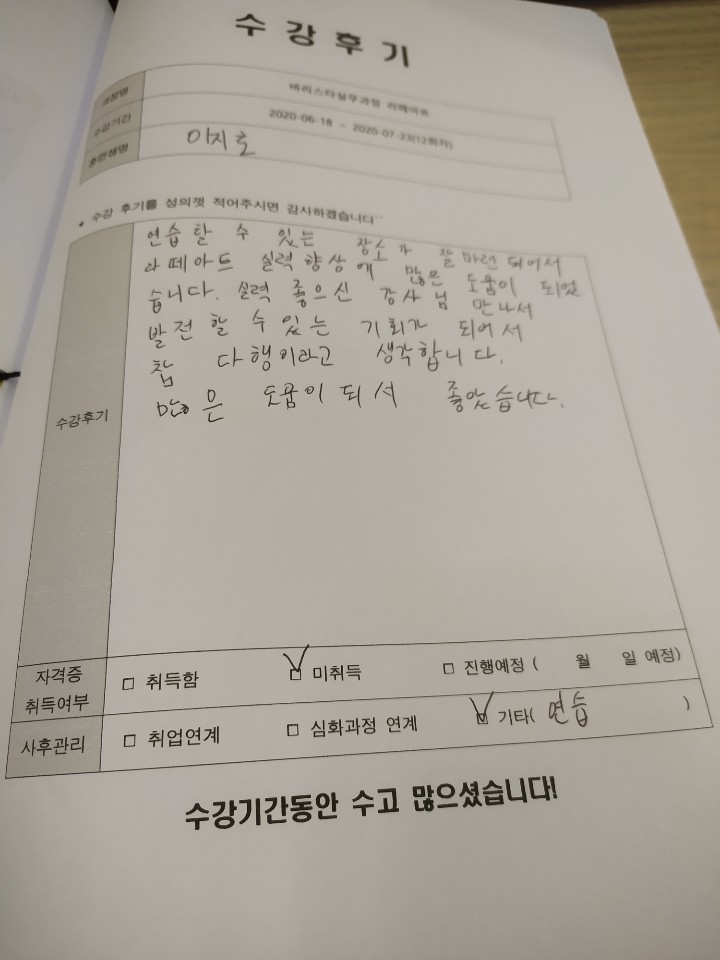 수강후기
과정명 바리스타실무과정 라떼아트
수강기간 2020-06-18 ~ 2020-07-23(12회차)
훈련생명 이지호
* 수강 후기를 성의껏 적어주시면 감사하겠습니다^^
수강후기
연습할 수 있는 장소가 잘 마련되어서
라떼아트 실력 향상에 많은 도움이 되었
습니다. 실력 좋으신 강사님 만나서
발전할 수 있는 기회가 되어서
참 다행이라고 생각합니다.
많은 도움이 되서 좋았습니다.
자격증 취득여부 □ 취득함 □ 미취득 □ 진행예정 ( 월 일 예정)
사후관리 □ 취업연계 □ 심화과정 연계 □ 기타( 연습 )
수강기간동안 수고 많으셨습니다!